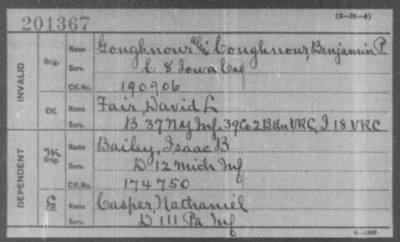 201367
(3-21-4)
INVALID
Orig.
Name Goughnour alias Coughnour, Benjamin P.
Serv. C 8 Iowa Cav
Ctf. No. 190906
Ctf.
Name Fair, David L
Serv. B 37 N.Y. Inf. 39 Co 2 Btln VRC, I 18 VRC
DEPENDENT
Orig.
Name Bailey, Isaac B
Serv. D 12 Mich Inf
Ctf. No. 174750
Name Casper, Nathaniel
Serv. D 111 Pa Inf